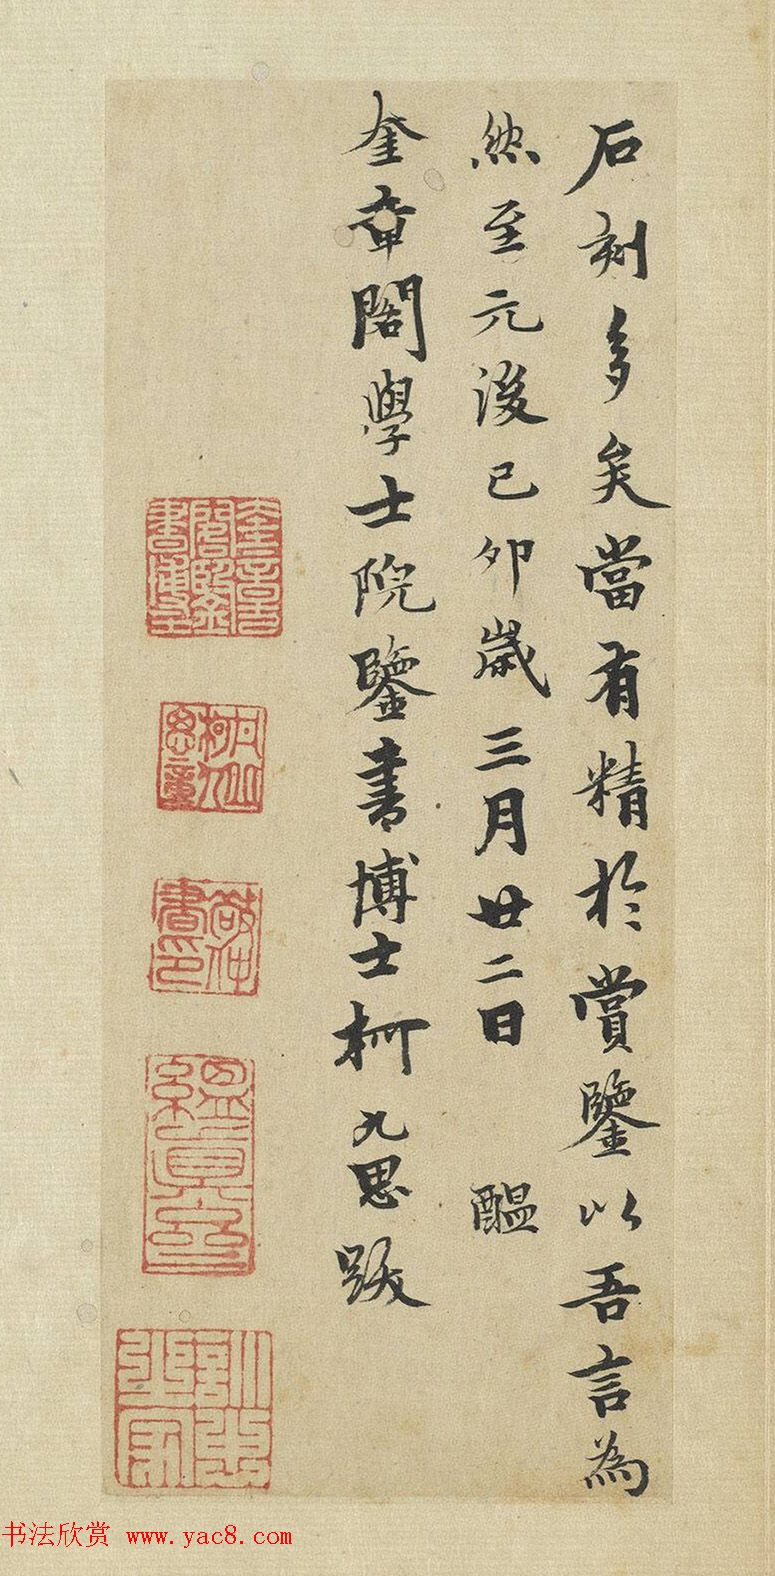 石刻多矣當有精於賞鑒以吾言為
然至元後己卯歲三月廿二日　醖
奎章閣學士院鑒書博士柯九思跋
奎章閣鑒書博士
柯九思
敬仲書印
縕真齋
訓忠之家
书法欣赏 www.yac8.com